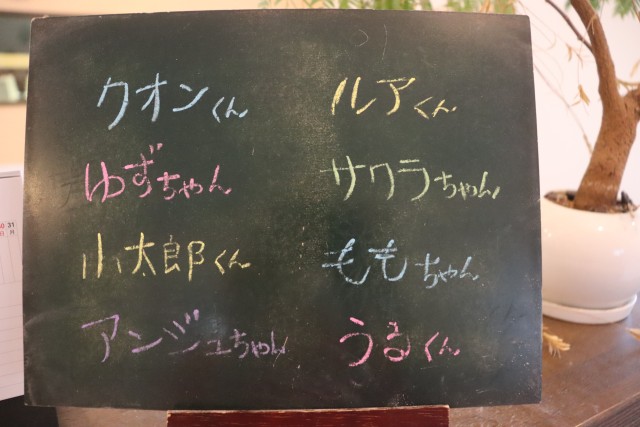 クオンくん
ルアくん
ゆずちゃん
サクラちゃん
小太郎くん
ももちゃん
アンジュちゃん
うるくん
31